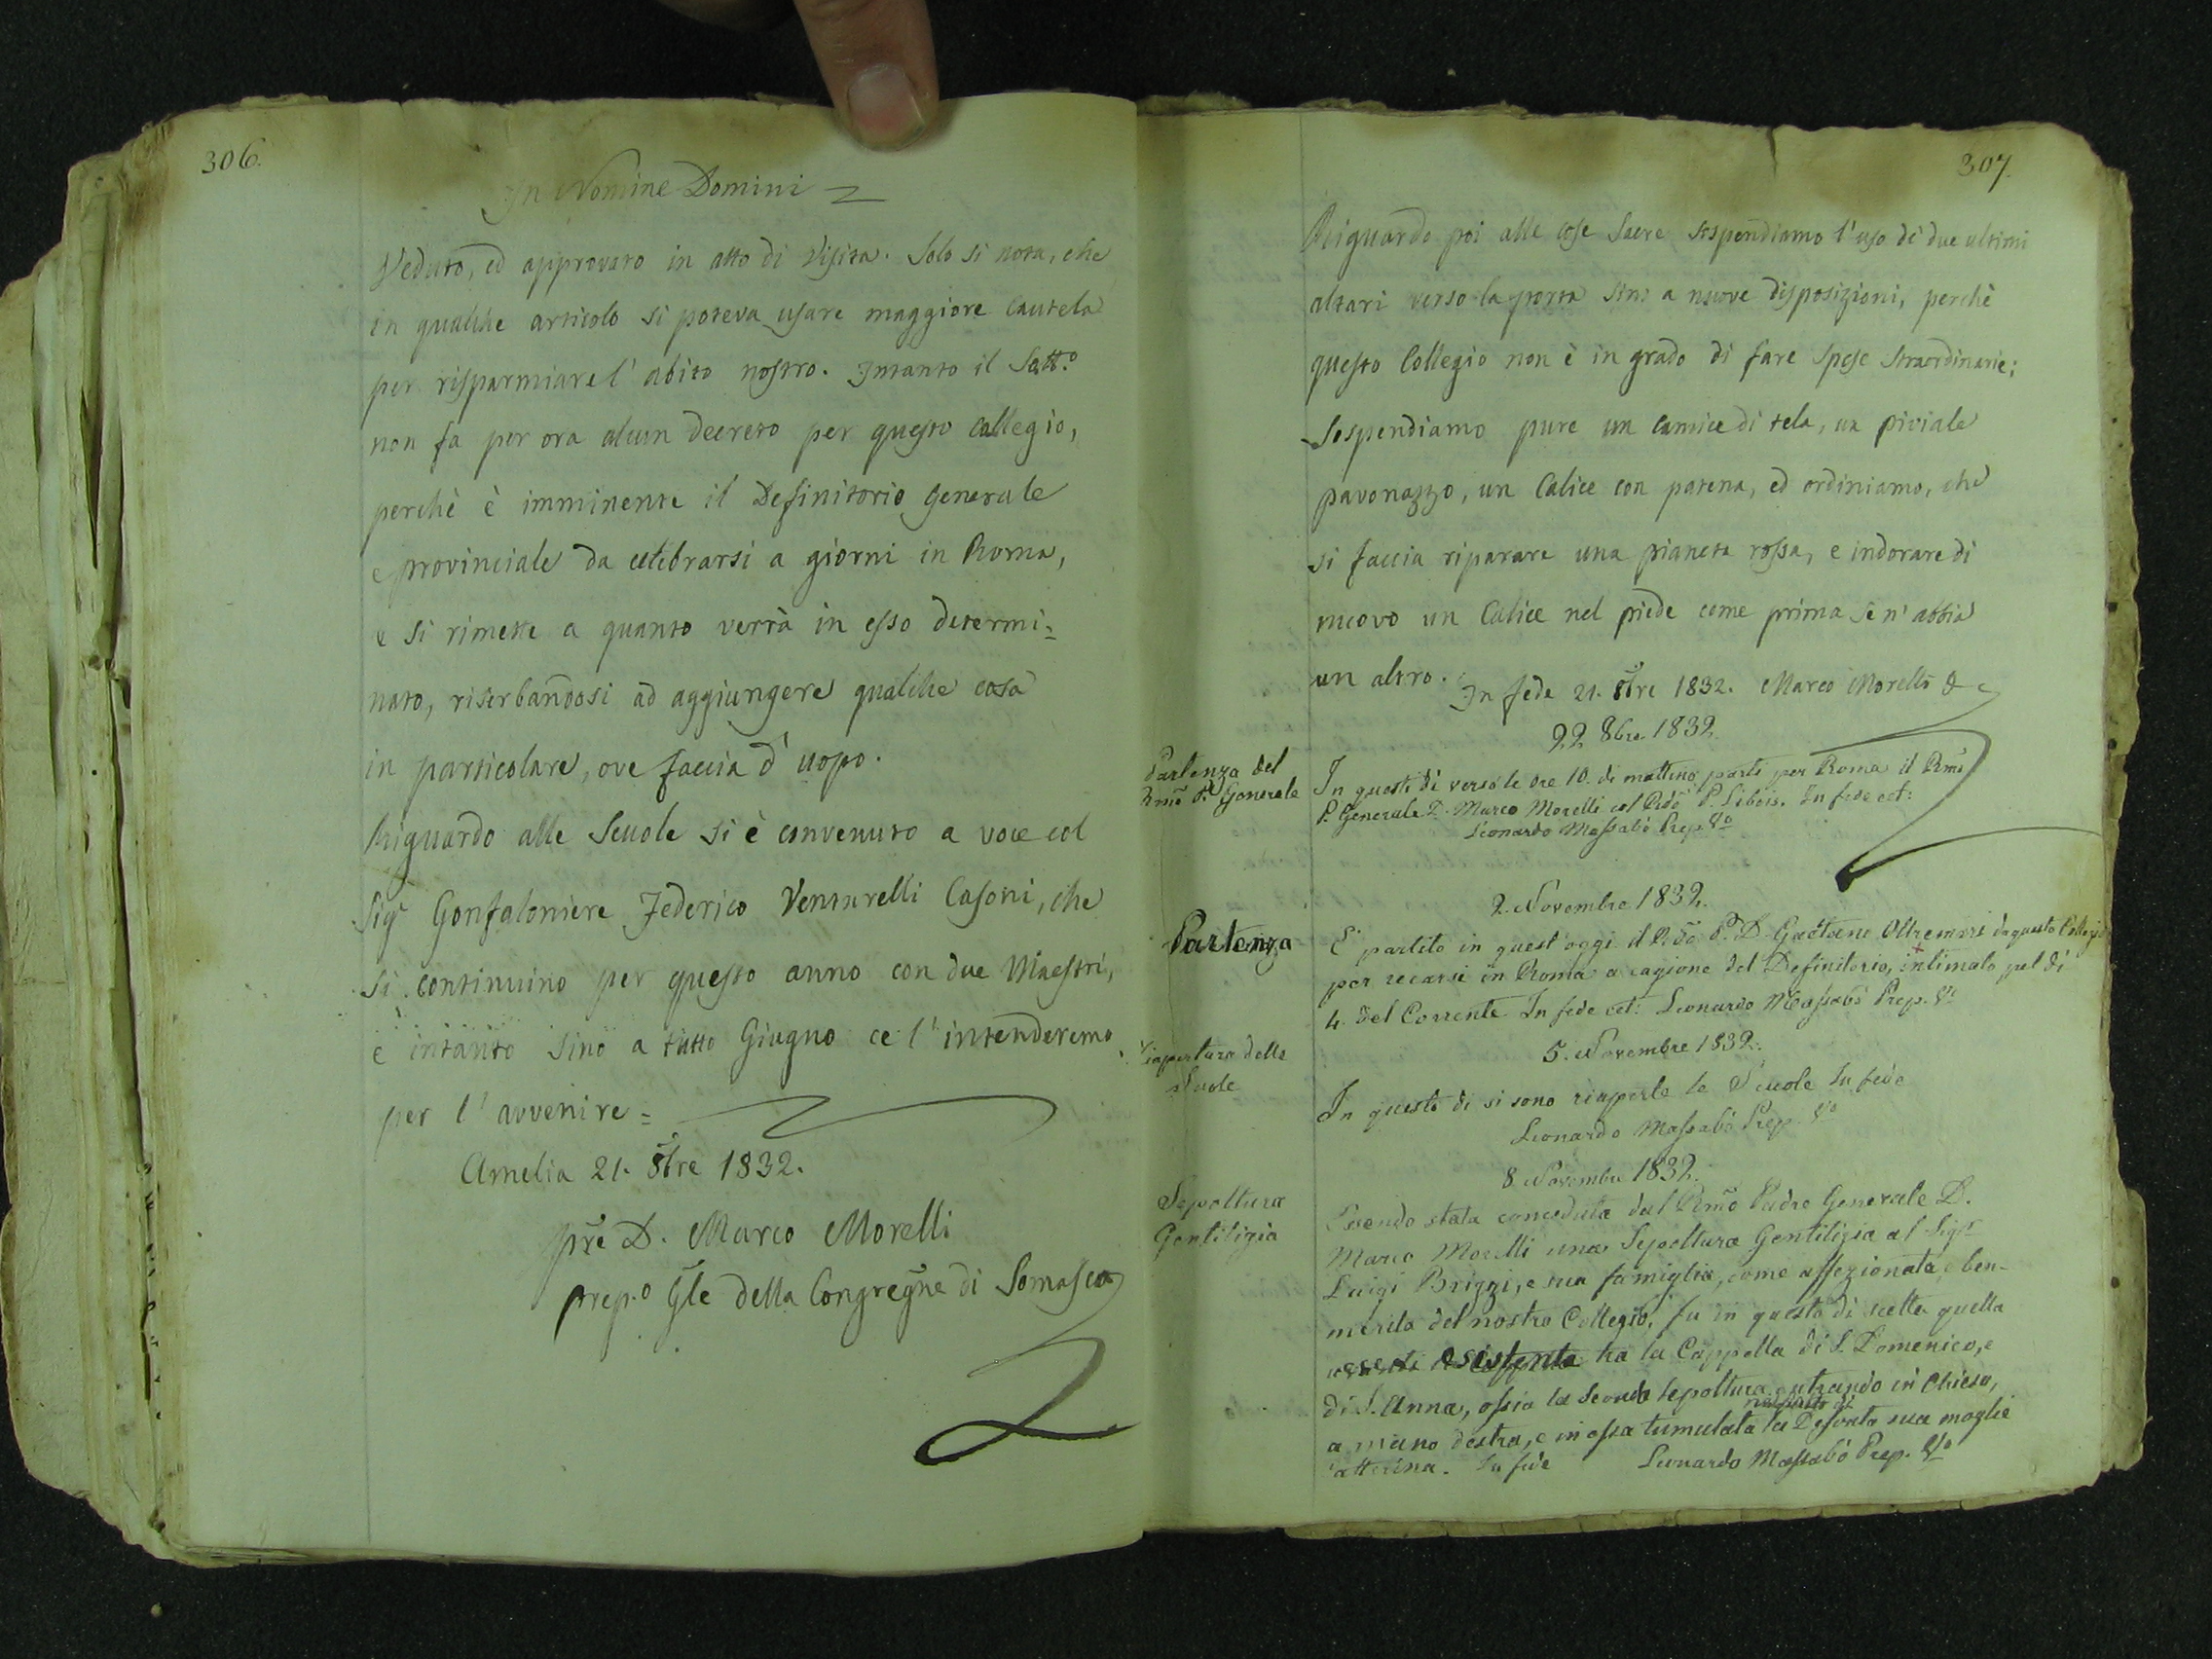 306.
In Nomine Domini
Veduto, ed approvato in atto di Visita. Solo si nota, che
in qualche articolo si poteva usare maggiore cautela
per risparmiare l'abito nostro. Intanto il Sott.o
non fa per ora alcun decreto per questo Collegio,
perchè è imminente il Definitorio generale
e provinciale da celebrarsi a giorni in Roma,
e si rimette a quanto verrà in esso determi=
nato, riserbandosi ad aggiungere qualche cosa
in particolare, ove faccia d'uopo.
Riguardo alle Scuole si è convenuto a voce col
Sigr Gonfaloniere Federico Venturelli Casoni, che
si continuino per questo anno con due Maestri,
e intanto sino a tutto Giugno ce l'intenderemo
per l'avvenire=
Amelia 21. 8bre 1832.
Pre D. Marco Morelli
Prep.o Gle della Congregne di Somasca
307.
Riguardo poi alle cose Sacre sospendiamo l'uso di due ultimi
altari verso la porta sino a nuove disposizioni, perchè
questo Collegio non è in grado di fare spese straordinarie;
Sospendiamo pure un camice di tela, un piviale
pavonazzo, un Calice con patena, ed ordiniamo, che
si faccia riparare una pianeta rossa, e indorare di
nuovo un Calice nel piede come prima se n'abbia
un altro. In fede 21. 8bre 1832. Marco Morelli
22 8bre 1832
Partenza del
Rmo P. Generale
In questo dì verso le ore 10. di mattina partì per Roma il Rmo
P. Generale D. Marco Morelli col Rdo P. Libois. In fede cet:
Leonardo Massabò Prep.
2. Novembre 1832.
Partenza
E' partito in quest'oggi il P. D. Gaetano Oltremari da questo Collegio
per recarsi in Roma a cagione del Definitorio, intimato pel dì
4. del Corrente In fede cet: Leonardo Massabò Prep.
5. Novembre 1832.
Riapertura delle
Scuole
In questo dì si sono riaperte le Scuole In fede
Leonardo Massabò Prep.
8 Novembre 1832.
Sepoltura
Gentilizia
Essendo stata conceduta dal Rmo Padre Generale D.
Marco Morelli una Sepoltura Gentilizia al Sigr
Luigi Brizzi, e sua famiglia, come affezionata, e ben-
merita del nostro Collegio, fu in questo dì scelta quella
esistente tra la Cappella di S. Domenico, e
di S. Anna, ossia la seconda sepoltura entrando in Chiesa,
a mano destra, e in essa tumulata la Defonta sua moglie
Catterina. In fede Leonardo Massabò Prep.